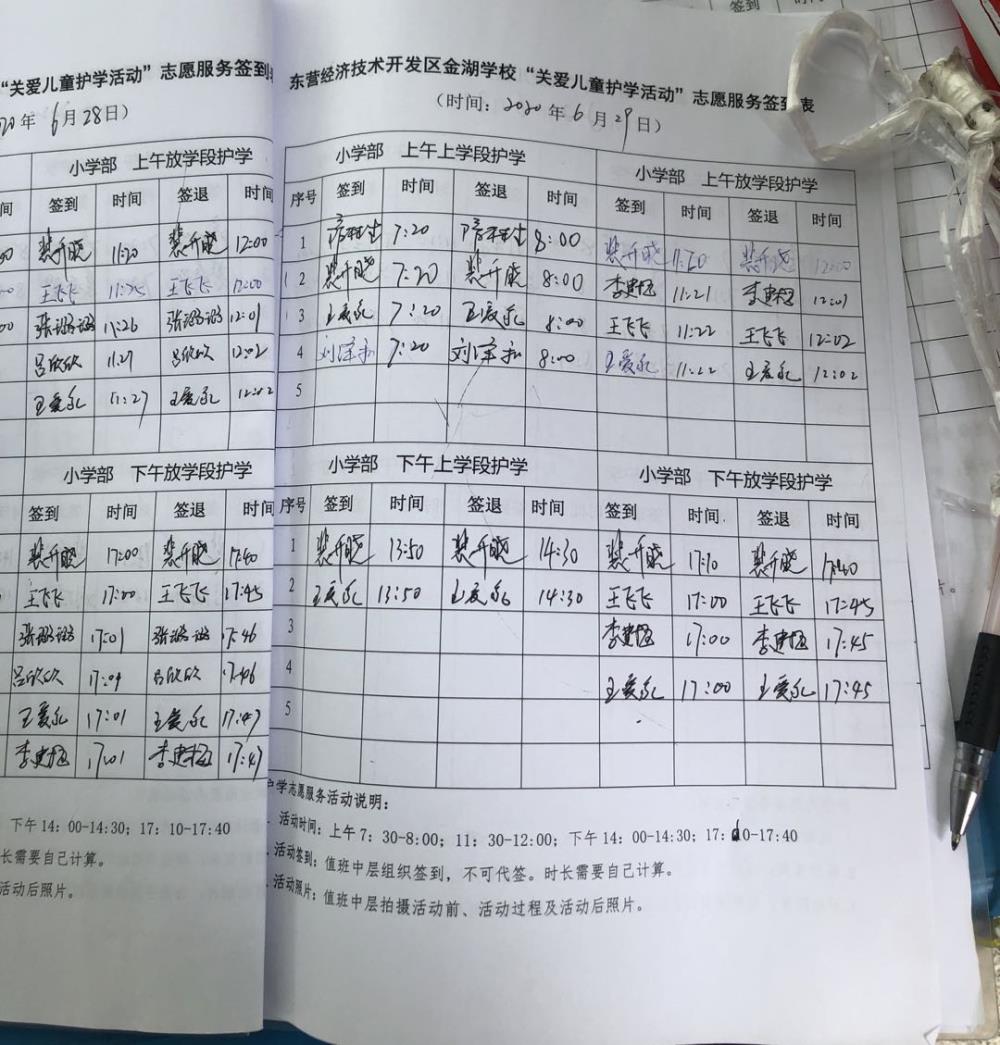 "关爱儿童护学活动"志愿服务签到
20年6月28日）
小学部 上午放学段护学
间 签到 时间 签退 时间
00 裴升晓 11:20 裴升晓 12:00
00 王飞飞 11:25 王飞飞 12:00
00 张璐璐 11:26 张璐璐 12:01
吕欣欣 11:27 吕欣欣 12:02
王爱永 11:27 王爱永 12:02
小学部 下午放学段护学
签到 时间 签退 时间
裴升晓 17:00 裴升晓 17:40
王飞飞 17:00 王飞飞 17:45
张璐璐 17:01 张璐璐 17:46
吕欣欣 17:01 吕欣欣 17:46
王爱永 17:01 王爱永 17:47
17:01 17:47
下午14：00-14:30；17：10-17:40
长需要自己计算。
活动后照片。
东营经济技术开发区金湖学校"关爱儿童护学活动"志愿服务签到表
（时间：2020年6月29日）
小学部 上午上学段护学 小学部 上午放学段护学
序号 签到 时间 签退 时间 签到 时间 签退 时间
1 7:20 8:00 裴升晓 11:20 裴升晓 12:00
2 裴升晓 7:20 裴升晓 8:00 11:21 12:01
3 王爱永 7:20 王爱永 8:00 王飞飞 11:22 王飞飞 12:02
4 7:20 8:00 王爱永 11:22 王爱永 12:02
5
小学部 下午上学段护学 小学部 下午放学段护学
序号 签到 时间 签退 时间 签到 时间 签退 时间
1 裴升晓 13:50 裴升晓 14:30 裴升晓 17:10 裴升晓 17:40
2 王爱永 13:50 王爱永 14:30 王飞飞 17:00 王飞飞 17:45
3 17:00 17:45
4 王爱永 17:00 王爱永 17:45
5
护学志愿服务活动说明：
活动时间：上午7：30-8:00；11：30-12:00；下午14：00-14:30；17：10-17:40
活动签到：值班中层组织签到，不可代签。时长需要自己计算。
活动照片：值班中层拍摄活动前、活动过程及活动后照片。
签到 时间